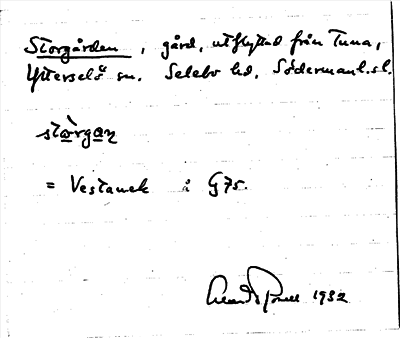 Storgården, gård, utflyttad från Tuna,
Ytterselö sn. Selebo hd, Södermanl.sl.
stòrgan
= Vestanek i G75.
1932